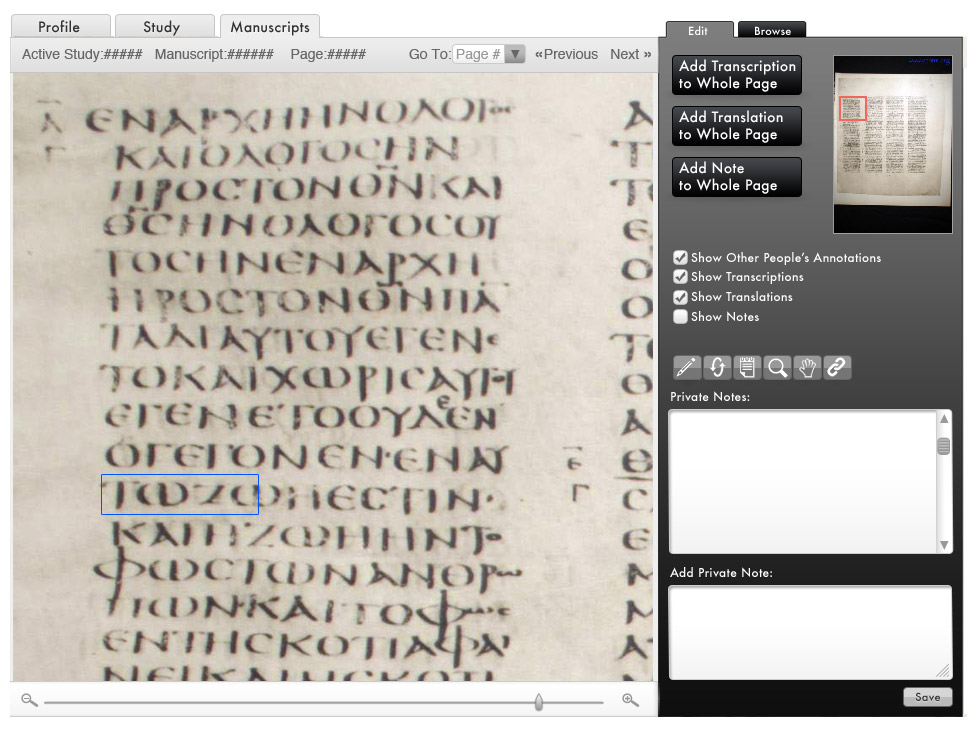 Profile
Study
Manuscripts
Active Study:##### Manuscript:###### Page:##### Go To: Page # «Previous Next »
Α
Γ
ΕΝΑΡΧΗΗΝΟΛΟΓΟϹ
ΚΑΙΟΛΟΓΟϹΗΝ
ΠΡΟϹΤΟΝΘ̅Ν̅ΚΑΙ
Θ̅Ϲ̅ΗΝΟΛΟΓΟϹΟΥ
ΤΟϹΗΝΕΝΑΡΧΗ
ΠΡΟϹΤΟΝΘ̅Ν̅ΠΑ
ΤΑΔΙΑΥΤΟΥΕΓΕΝΕ
ΤΟΚΑΙΧΩΡΙϹΑΥΤΟΥ
ΕΓΕΝΕΤΟΟΥΔΕΕΝ
ΟΓΕΓΟΝΕΝ·ΕΝΑΥ
ΤΩΖΩΗΕϹΤΙΝ·
ΚΑΙΗΖΩΗΗΝΤΟ
ΦΩϹΤΩΝΑΝΘΡΩ
ΠΩΝ·ΚΑΙΤΟΦΩϹ
ΕΝΤΗϹΚΟΤΙΑΦΑΙ
ΝΕΙΚΑΙΗϹΚΟΤΙ
Ε
Γ
Edit
Browse
Add Transcription
to Whole Page
Add Translation
to Whole Page
Add Note
to Whole Page
Show Other People's Annotations
Show Transcriptions
Show Translations
Show Notes
Private Notes:
Add Private Note:
Save